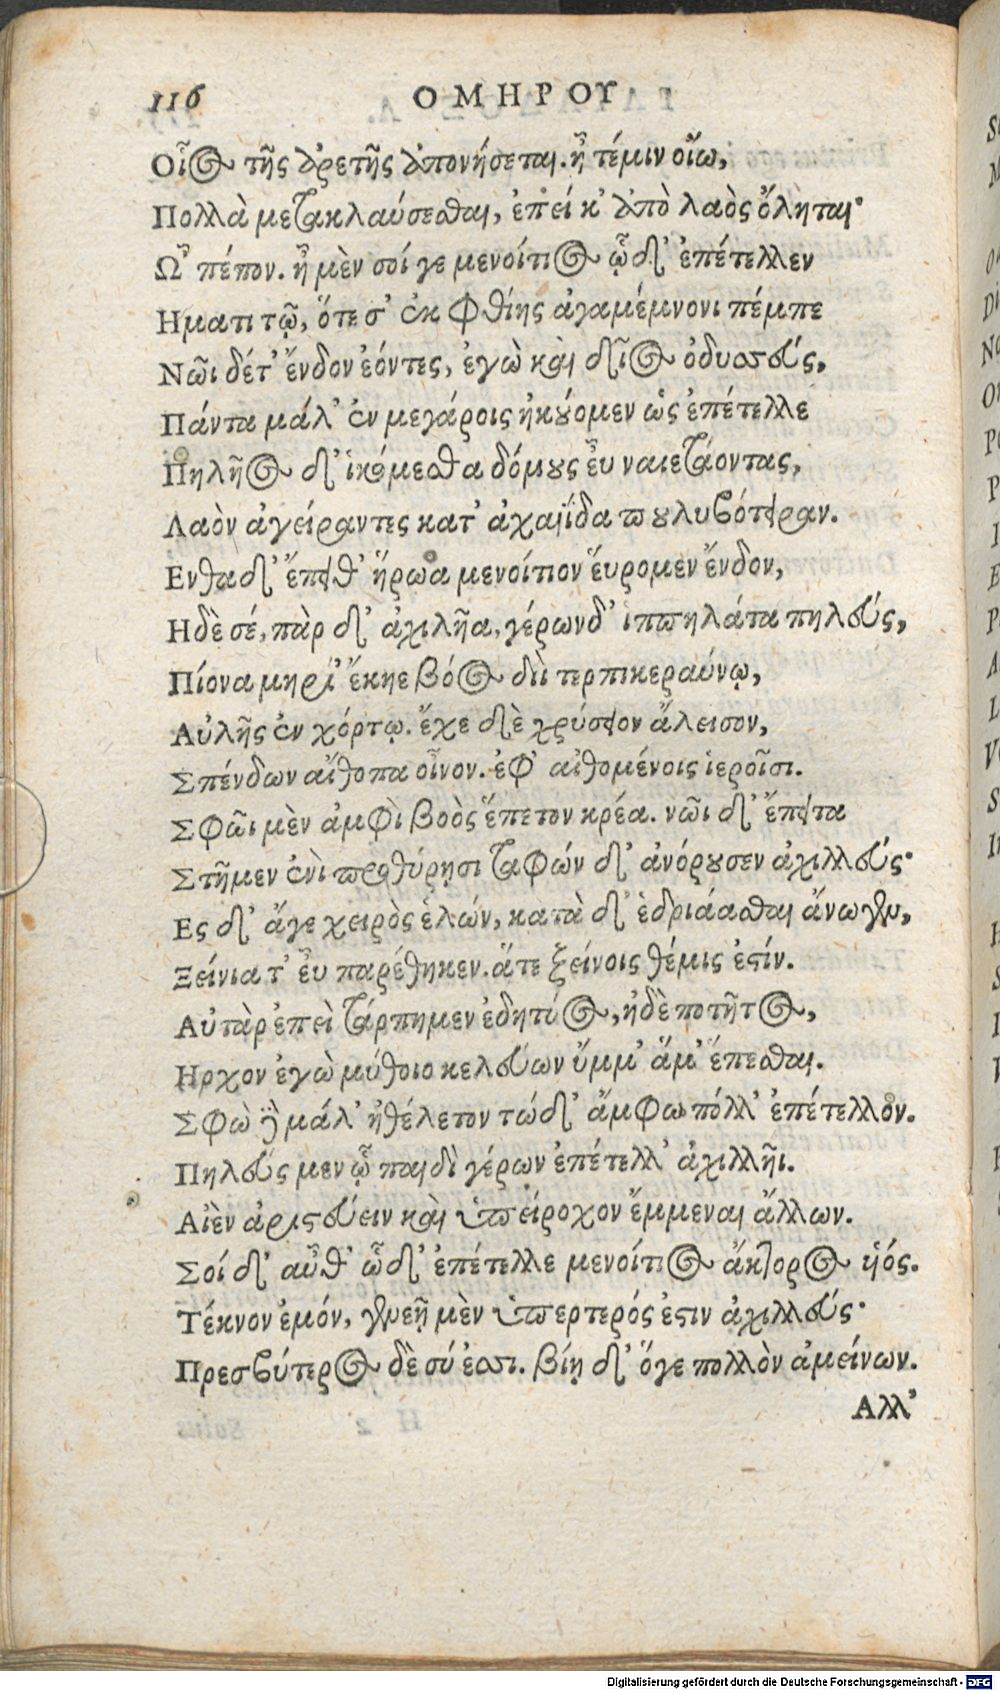 116 ΟΜΗΡΟΥ
Οἶος τῆς ἀρετῆς ἀπονήσεται. ἦ τέ μιν οἴω,
Πολλὰ μετακλαύσεσθαι, ἐπεί κ' ἀπὸ λαὸς ὄληται·
Ὦ πέπον. ἦ μὲν σοί γε μενοίτιος ᾧδ' ἐπέτελλεν
Ηματι τῷ, ὅτε σ' ἐκ Φθίης ἀγαμέμνονι πέμπε
Νῶι δέ τ' ἔνδον ἐόντες, ἐγὼ καὶ δῖος ὀδυσσεύς,
Πάντα μάλ' ἐν μεγάροις ἠκούομεν ὡς ἐπέτελλε
Πηλῆος δ' ἱκόμεσθα δόμους εὖ ναιετάοντας,
Λαὸν ἀγείραντες κατ' ἀχαιΐδα πουλυβότειραν.
Ενθα δ' ἔπειθ' ἥρωα μενοίτιον εὕρομεν ἔνδον,
Ηδὲ σέ, πὰρ δ' ἀχιλῆα, γέρων δ' ἱππηλάτα πηλεύς,
Πίονα μηρί' ἔκηε βόος διὶ τερπικεραύνῳ,
Αὐλῆς ἐν χόρτῳ. ἔχε δὲ χρύσειον ἄλεισον,
Σπένδων αἴθοπα οἶνον. ἐφ' αἰθομένοις ἱεροῖσι.
Σφῶι μὲν ἀμφὶ βοὸς ἕπετον κρέα. νῶι δ' ἔπειτα
Στῆμεν ἐνὶ προθύρῃσι ταφών δ' ἀνόρουσεν ἀχιλλεύς·
Ες δ' ἄγε χειρὸς ἑλών, κατὰ δ' ἑδριάασθαι ἄνωγεν,
Ξείνια τ' εὖ παρέθηκεν. ἅτε ξείνοις θέμις ἐστίν.
Αὐτὰρ ἐπεὶ τάρπημεν ἐδητύος, ἠδὲ ποτῆτος,
Ηρχον ἐγὼ μύθοιο κελεύων ὔμμ' ἅμ' ἕπεσθαι.
Σφὼ δὲ μάλ' ἠθέλετον τώδ' ἄμφω πόλλ' ἐπέτελλον.
Πηλεύς μεν ᾧ παιδὶ γέρων ἐπέτελλ' ἀχιλλῆι.
Αἰὲν ἀριστεύειν καὶ ὑπείροχον ἔμμεναι ἄλλων.
Σοί δ' αὖθ' ὧδ' ἐπέτελλε μενοίτιος ἄκτορος υἱός.
Τέκνον ἐμόν, γενεῇ μὲν ὑπερτερός ἐστιν ἀχιλλεύς·
Πρεσβύτερος δὲ σύ ἐσσι. βίῃ δ' ὅγε πολλὸν ἀμείνων.
Αλλ'
Digitalisierung gefördert durch die Deutsche Forschungsgemeinschaft - DFG